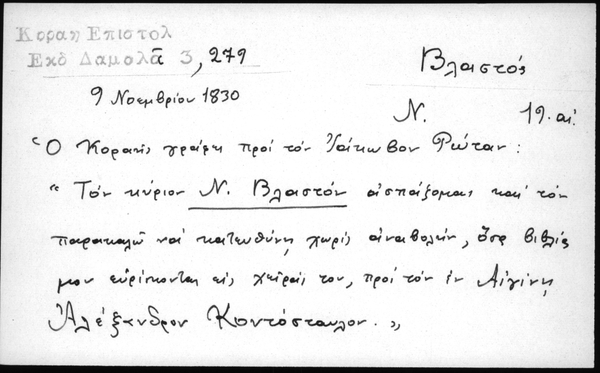 Κοραη Επιστολ
Εκδ Δαμαλᾶ 3, 279
Βλαστός
9 Νοεμβρίου 1830
Ν. 19. αἰ.
Ὁ Κοραῆς γράφει πρὸς τὸν Ἰάκωβον Ρώταν:
"Τὸν κύριον Ν. Βλαστὸν ἀσπάζομαι καὶ τὸν
παρακαλῶ νὰ κατευθύνῃ χωρὶς ἀναβολὴν, ὅσα βιβλία
μου εὑρίσκονται εἰς χεῖράς του, πρὸς τὸν ἐν Αἰγίνῃ
Ἀλέξανδρον Κοντόσταυλον."